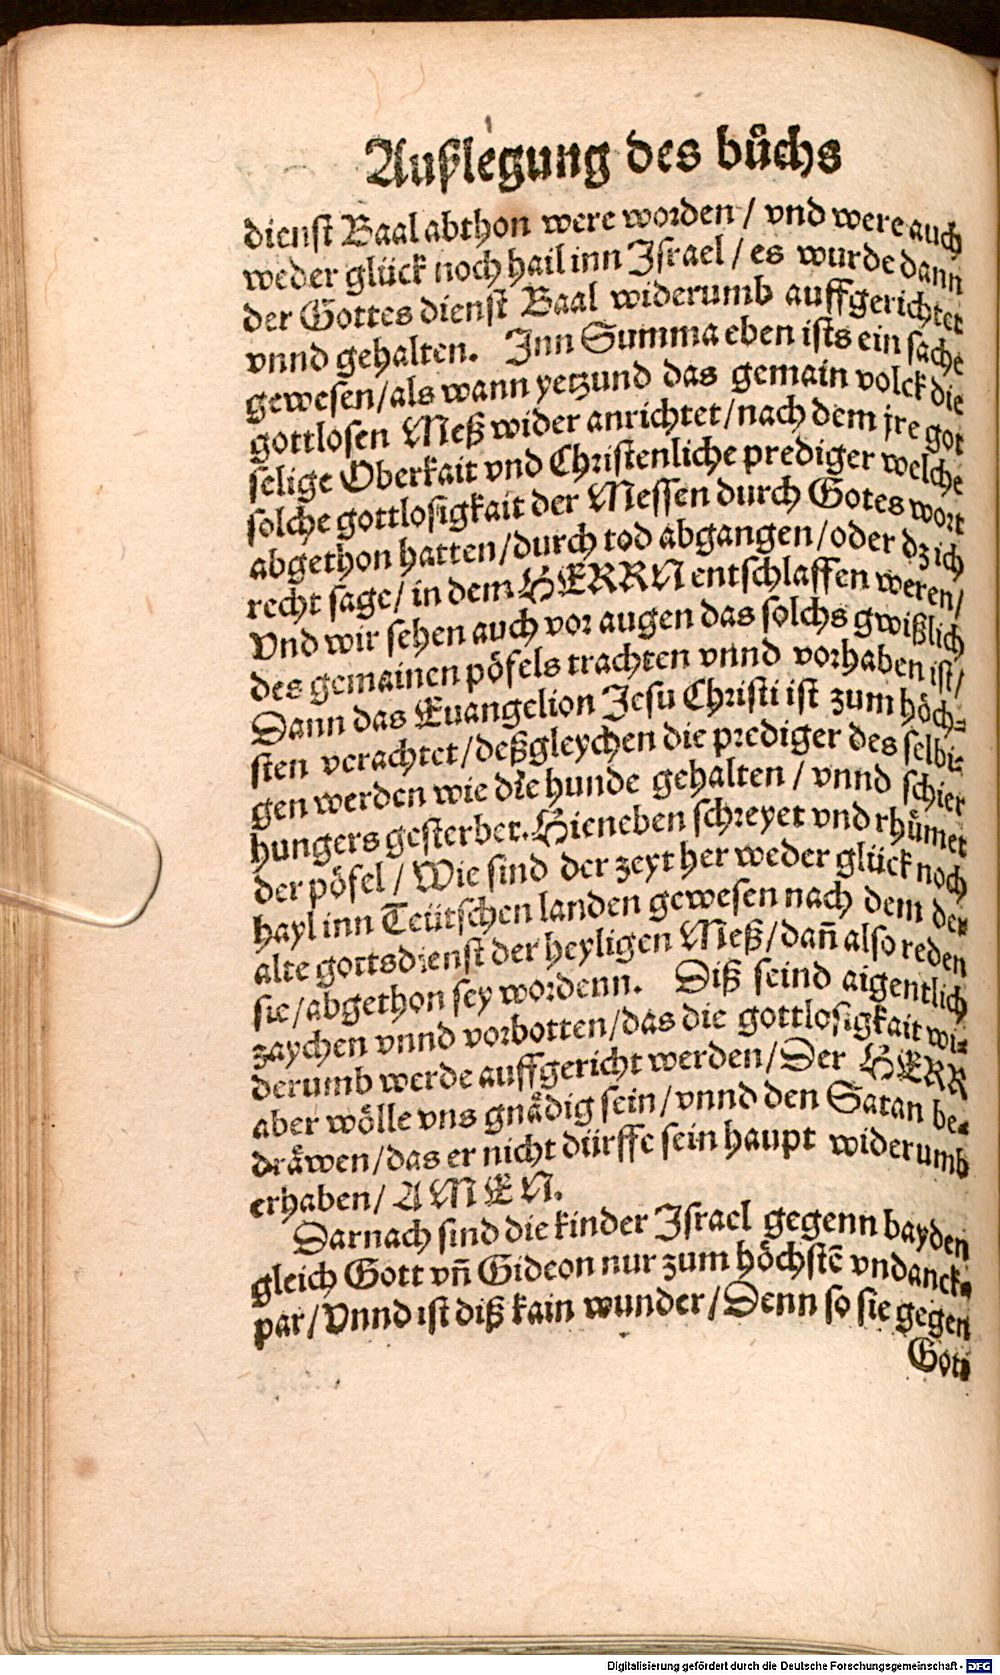 Außlegung des buͦchs
dienst Baal abthon were worden / vnd were auch
weder glück noch hail inn Israel / es wurde dann
der Gottes dienst Baal widerumb auffgerichtet
vnnd gehalten. Inn Summa eben ists ein sache
gewesen / als wann yetzund das gemain volck die
gottlosen Meß wider anrichtet / nach dem jre got
selige Oberkait vnd Christenliche prediger welche
solche gottlosigkait der Messen durch Gotes wort
abgethon hatten / durch tod abgangen / oder dz ich
recht sage / in dem HERRN entschlaffen weren /
Vnd wir sehen auch vor augen das solchs gwißlich
des gemainen pöfels trachten vnnd vorhaben ist /
Dann das Euangelion Jesu Christi ist zum höch-
sten verachtet / deßgleychen die prediger des selbi-
gen werden wie die hunde gehalten / vnnd schier
hungers gesterbet. Hieneben schreyet vnd rhuͤmet
der pöfel / Wie sind der zeyt her weder glück noch
hayl inn Teütschen landen gewesen nach dem der
alte gottsdienst der heyligen Meß / dañ also reden
sie / abgethon sey wordenn. Diß seind aigentlich
zaychen vnnd vorbotten / das die gottlosigkait wi-
derumb werde auffgericht werden / Der HERR
aber wölle vns gnaͤdig sein / vnnd den Satan be-
draͤwen / das er nicht dürffe sein haupt widerumb
erhaben / AMEN.
Darnach sind die kinder Israel gegenn bayden
gleich Gott vñ Gideon nur zum höchstē vndanck-
par / Vnnd ist diß kain wunder / Denn so sie gegen
Gott
Digitalisierung gefördert durch die Deutsche Forschungsgemeinschaft - DFG